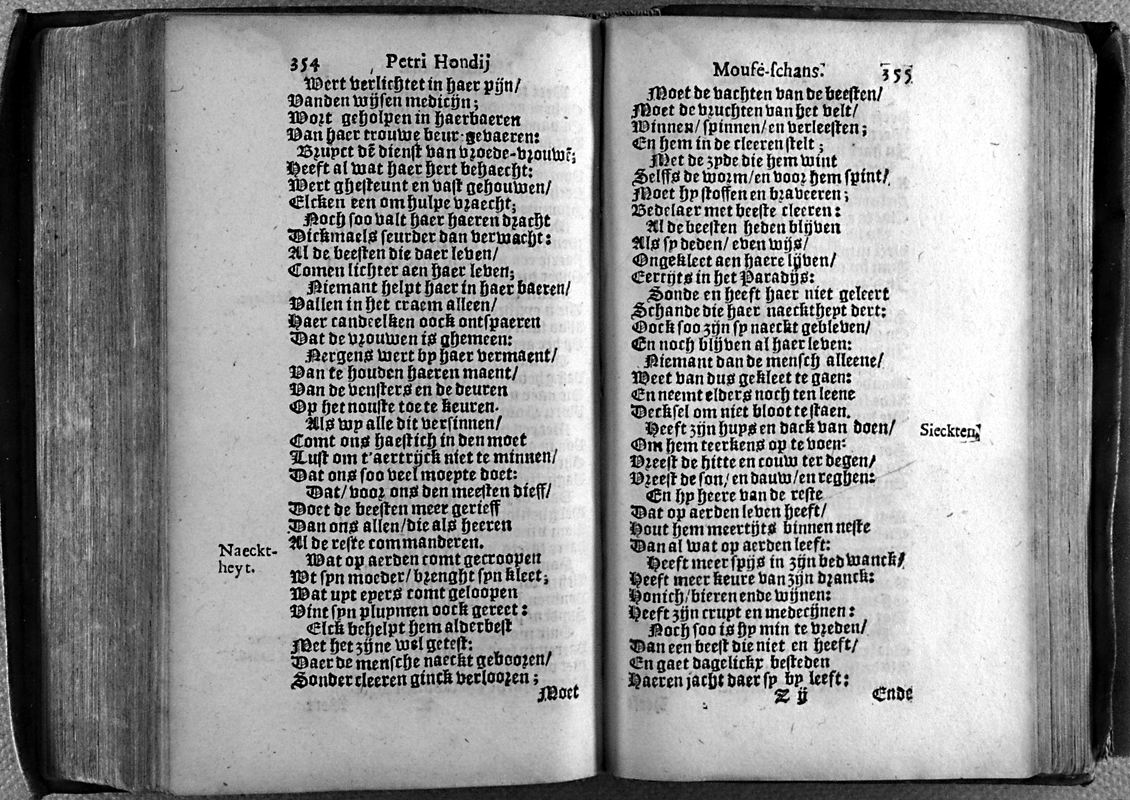 354 Petri Hondij
Wert verlichtet in haer pijn/
Vanden wijsen medicijn;
Wort geholpen in haerbaeren
Van haer trouwe beur-gevaeren:
Bruyct dē dienst van vroede-vrouwē;
Heeft al wat haer hert behaecht:
Wert ghesteunt en vast gehouwen/
Elcken een om hulpe vraecht;
Noch soo valt haer haeren dracht
Dickmaels seurder dan verwacht:
Al de beesten die daer leven/
Comen lichter aen haer leven;
Niemant helpt haer in haer baeren/
Vallen in het craem alleen/
Haer candeelken oock ontspaeren
Dat de vrouwen is ghemeen:
Nergens wert by haer vermaent/
Van te houden haeren maent/
Van de vensters en de deuren
Op het nouste toe te keuren.
Als wy alle dit versinnen/
Comt ons haestich in den moet
Lust om t'aertrijck niet te minnen/
Dat ons soo veel moeyte doet:
Dat/ voor ons den meesten dieff/
Doet de beesten meer gerieff
Dan ons allen/die als heeren
Al de reste commanderen.
Naeckt-
heyt.
Wat op aerden comt gecroopen
Wt syn moeder/ brenght syn kleet;
Wat uyt eyers comt geloopen
Vint syn pluymen oock gereet:
Elck behelpt hem alderbest
Met het zijne wel getest:
Daer de mensche naeckt gebooren/
Sonder cleeren ginck verlooren;
Moet
Moufe-schans. 355
Moet de vachten van de beesten/
Moet de vruchten van het velt/
Winnen/ spinnen/ en verleesten;
En hem in de cleeren stelt;
Met de zyde die hem wint
Selffs de worm/ en voor hem spint/
Moet hy stoffen en braveeren;
Bedelaer met beeste cleeren:
Al de beesten heden blijven
Als sy deden/ even wijs/
Ongekleet aen haere lijven/
Eertijts in het Paradijs:
Sonde en heeft haer niet geleert
Schande die haer naecktheyt dert:
Oock soo zijn sy naeckt gebleven/
En noch blijven al haer leven:
Niemant dan de mensch alleene/
Weet van dus gekleet te gaen:
En neemt elders noch ten leene
Decksel om niet bloot te staen.
Heeft zijn huys en dack van doen/
Sieckten.
Om hem teerkens op te voen:
Vreest de hitte en couw ter degen/
Vreest de son/ en dauw/ en reghen:
En hy heere van de reste
Dat op aerden leven heeft/
Hout hem meertijts binnen neste
Dan al wat op aerden leeft:
Heeft meer spijs in zijn bedwanck/
Heeft meer keure van zijn dranck:
Honich/ bieren ende wijnen:
Heeft zijn cruyt en medecijnen:
Noch soo is hy min te vreden/
Dan een beest die niet en heeft/
En gaet dagelickx besteden
Haeren jacht daer sy by leeft:
Z ij Ende